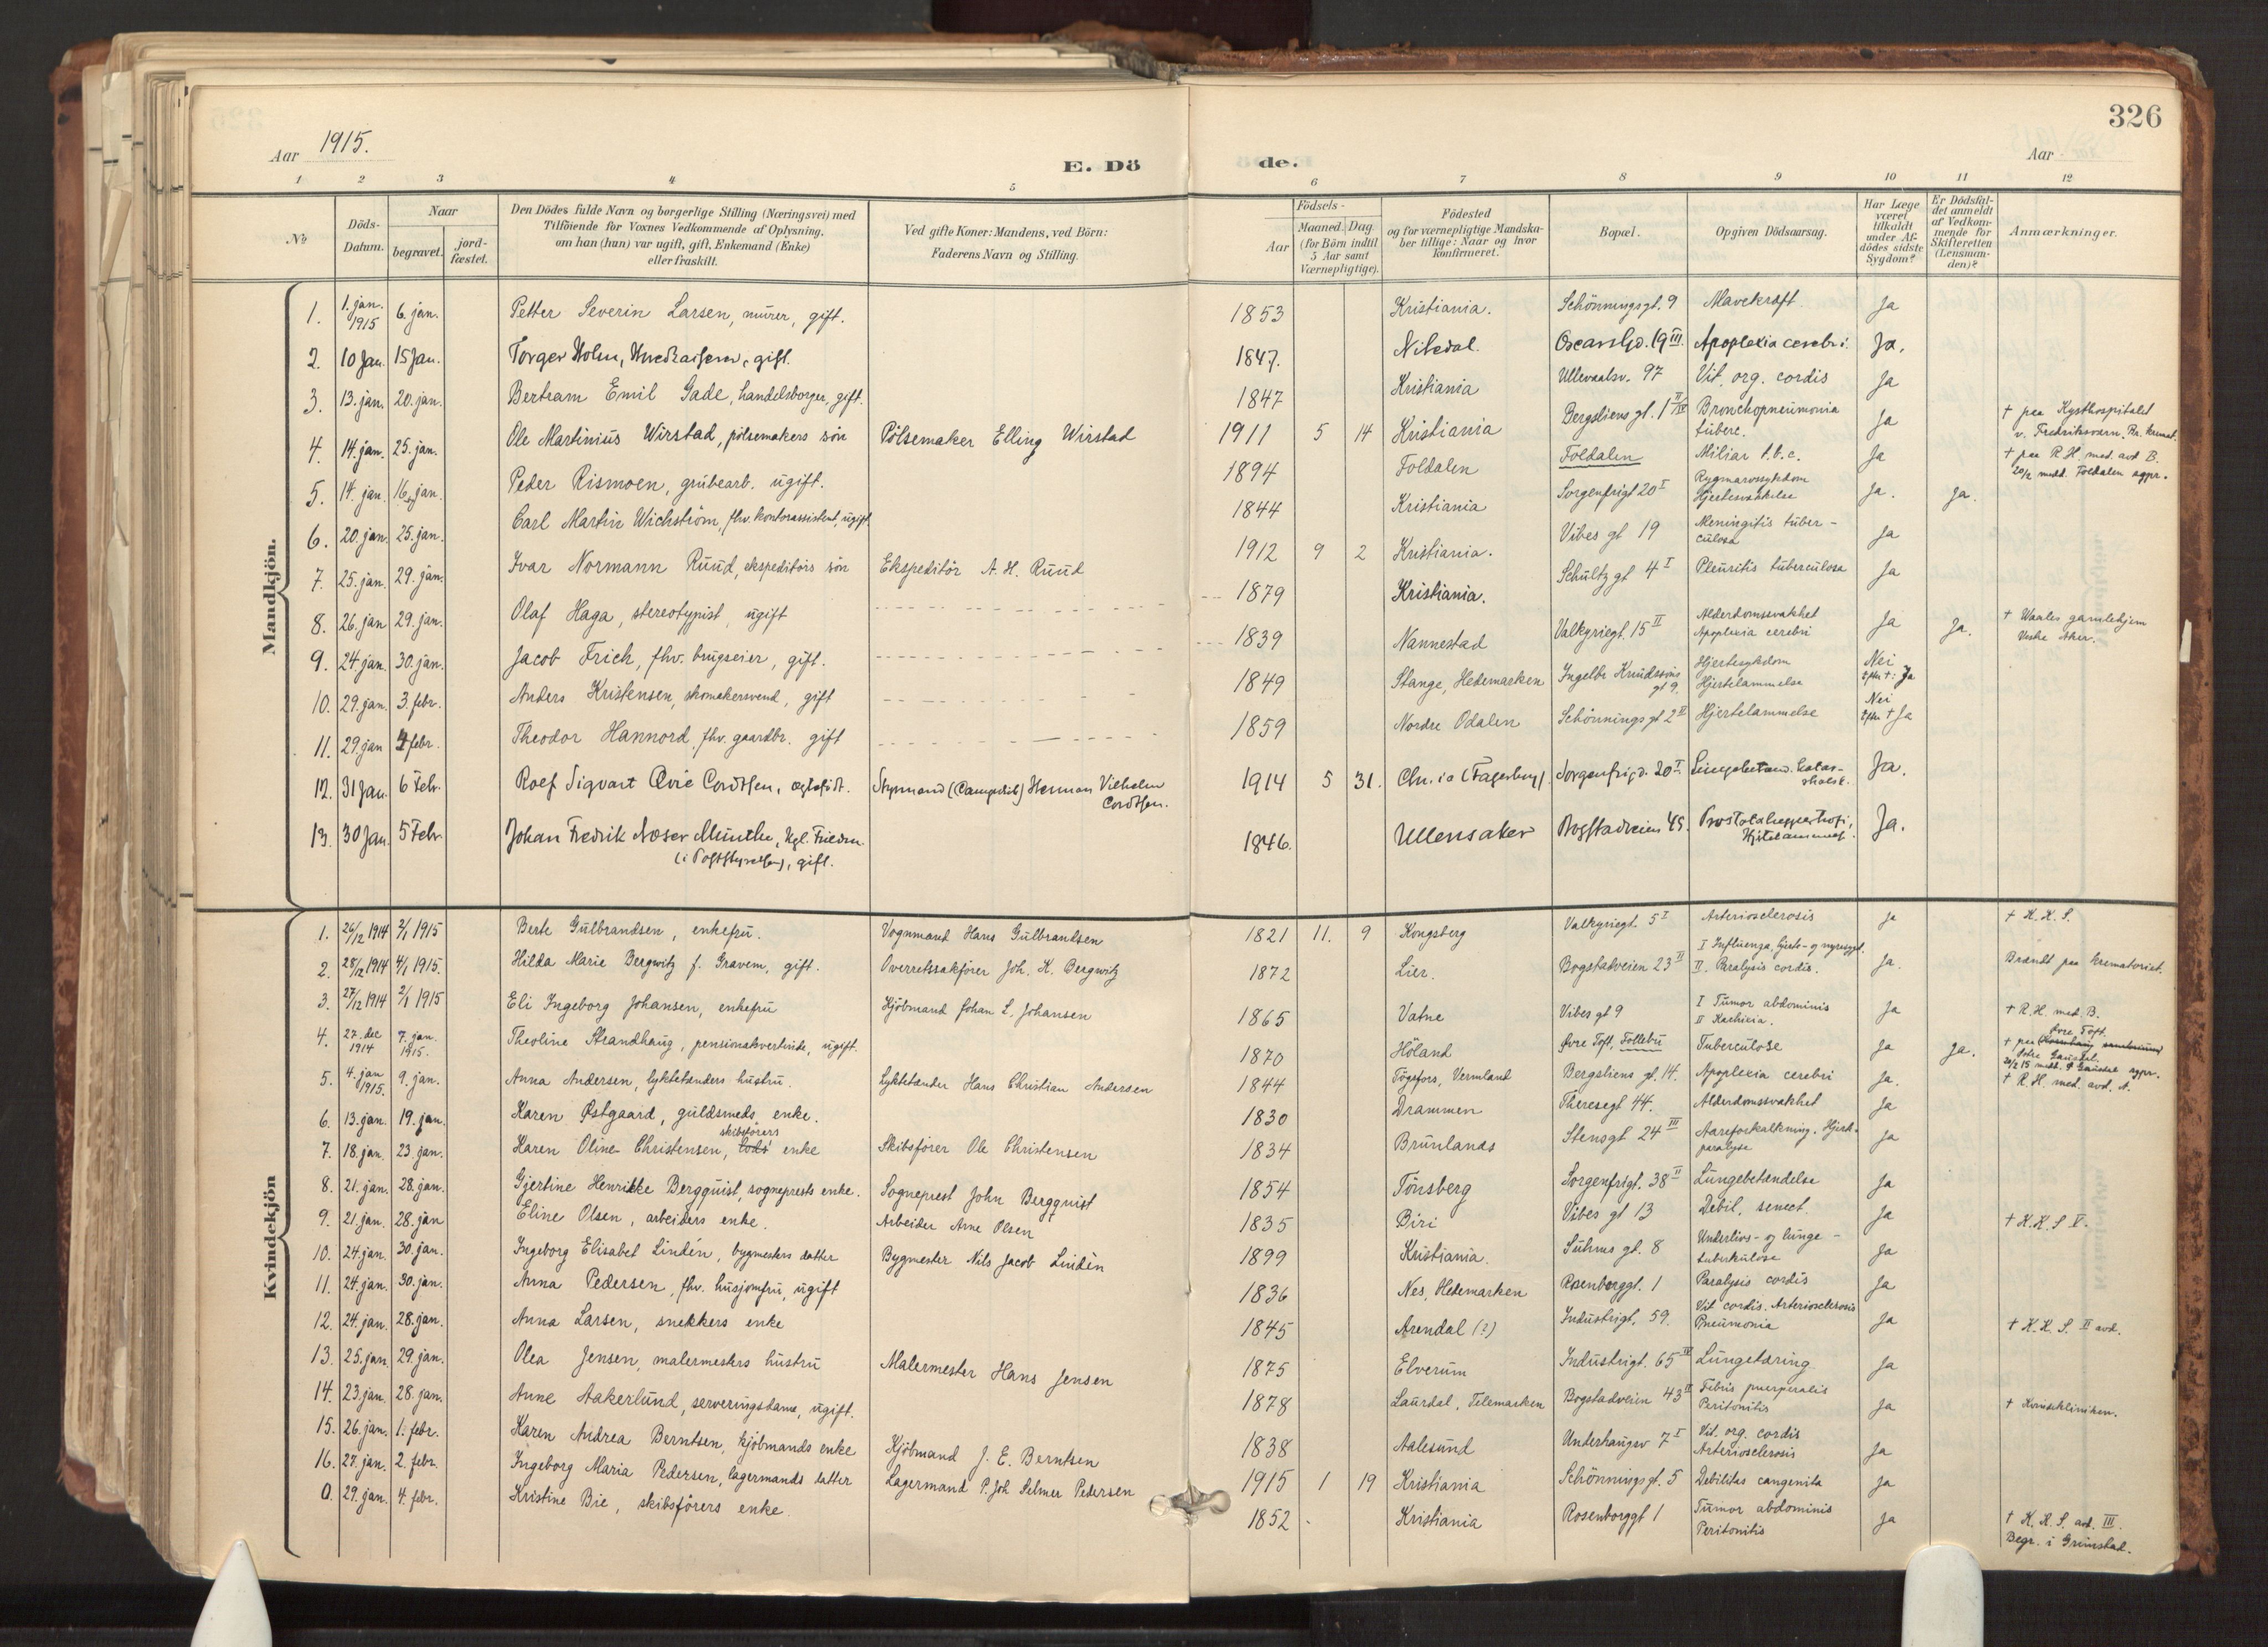 326
Aar 1915.
E. Dö de.
Aar
1 2 3 4 5 6 7 8 9 10 11 12
№
Döds-Datum.
Naar
begravet.
jord-fæstet.
Den Dödes fulde Navn og borgerlige Stilling (Næringsvei) med
Tilföiende for Voxnes Vedkommende af Oplysning,
om han (hun) var ugift, gift, Enkemand (Enke)
eller fraskilt.
Ved gifte Koner: Mandens, ved Börn:
Faderens Navn og Stilling.
Födsels-
Aar
Maaned. Dag.
(for Börn indtil
5 Aar samt
Værnepligtige).
Födested
og for værnepligtige Mandska-
ber tillige: Naar og hvor
konfirmeret.
Bopæl.
Opgiven Dödsaarsag.
Har Læge
været
tilkaldt
under Af-
dödes sidste
Sygdom?
Er Dödsfal-
det anmeldt
af Vedkom-
mende for
Skifteretten
(Lensman-
den)?
Anmærkninger.
Mandkjön.
1. 1. jan. 1915 6. jan. Petter Severin Larsen, murer, gift. 1853 Kristiania. Schönningsgt. 9 Mavekræft. Ja
2. 10 Jan. 15 Jan. Torger Holm, gift. 1847. Nitedal. Oscarsgd. 19 III. Apoplexia cerebri. Ja.
3. 13. jan. 20. jan. Bertram Emil Gade, handelsborger, gift. 1847 Kristiania Ullevaalsv. 97 Vit. org. cordis Ja
4. 14. jan. 25. jan. Ole Martinius Wirstad, pölsemakers sön Pölsemaker Elling Wirstad 1911 5 14 Kristiania Bergsliens gt. 1 Bronchopneumonia tuberc. Ja † paa Kysthospitalet v. Fredriksværn. Kr. kremat.
5. 14. jan. 16. jan. Peder Rismoen, grubearb. ugift. 1894 Foldalen Foldalen Miliar t.b.c. Ja † paa R.H. med. avd B. 20/2 medd. Foldalen sgpr.
6. 20. jan. 25. jan. Carl Martin Wichström, fhv. kontorassistent, ugift 1844 Kristiania Sorgenfrigt 20 I Rygmarvssykdom Hjertesvakhet Ja. Ja.
7. 25. jan. 29. jan. Ivar Normann Ruud, ekspeditörs sön Ekspeditör A. H. Ruud 1912 9 2 Kristiania. Vibes gt 19 Meningitis tuber-culosa Ja
8. 26. jan 29. jan. Olaf Haga, stereotypist, ugift 1879 Kristiania. Schultz gt 4 I Pleuritis tuberculosa Ja
9. 24. jan. 30. jan. Jacob Frich, fhv. brugseier, gift. 1839 Nannestad Valkyriegt. 15 II Alderdomssvakhet Apoplexia cerebri Ja Ja. † Waales gamlehjem Vestre Aker.
10. 29. jan. 3. febr. Anders Kristensen, skomakersvend, gift 1849 Stange, Hedemarken Ingelbr. Knudssøns gt 9. Hjertesykdom Hjertelammelse Nei efter †: Ja
11. 29. jan 4 febr. Theodor Hannord, fhv. gaardbr. gift 1859 Nordre Odalen Schönnings gt 2 II Hjertelammelse Nei efter † Ja
12. 31 Jan. 6 Febr. Rolf Sigvart Qvie Cordtsen, ægtefödt. Styrmand Herman Vilhelm Cordtsen. 1914 5 31. Chr.ia (Fagerborg) Sorgenfrigd. 20 I. Lungebetænd. Ja.
13. 30 Jan. 5 Febr Johan Fredrik Næser Munthe, Kgl. Fuldm. (i Poststyrelsen), gift. 1846. Ullensaker Bogstadveien 45. Ja.
Kvindekjön
1. 26/12 1914 2/1 1915 Berte Gulbrandsen, enkefru. Vognmand Hans Gulbrandsen 1821 11. 9 Kongsberg Valkyriegt. 5 I Arteriosclerosis Ja † K.K.S.
2. 28/12 1914 4/1 1915. Hilda Marie Bergwitz f. Gravem, gift. Overretssakförer Joh. K. Bergwitz 1872 Lier. Bogstadveien 23 II I Influenza, hjerte- og nyresygd. II. Paralysis cordis. Ja. Brændt paa krematoriet.
3. 27/12 1914 2/1 1915 Eli Ingeborg Johansen, enkefru Kjöbmand Johan L. Johansen 1865 Vatne Vibes gt 9 I Tumor abdominis II Kachixia. Ja † R.H. med. B.
4. 27. dec 1914 7. jan. 1915. Theoline Strandhaug, pensionatvertinde, ugift. 1870 Höland Øvre Toft, Follebu Tuberculose Ja Ja. † paa Øvre Toft. Østre Gausdal. 20/2 15 medd. Ø Gausdal sgpr.
5. 4. jan 1915. 9. jan. Anna Andersen, lyktetænders hustru. Lyktetænder Hans Christian Andersen 1844 Tögsfors, Vermland Bergsliens gt. 14. Apoplexia cerebri Ja. † R.H. med. avd. A.
6. 13. jan. 19. jan. Karen Østgaard, guldsmeds enke. 1830 Drammen Theresegt 44. Alderdomssvakhet Ja
7. 18. jan. 23. jan. Karen Oline Christensen, lods skibsförers enke Skibsförer Ole Christensen 1834 Brunlanæs Stensgt 24 III Aareforkalkning. Hjerte-paralyse Ja
8. 21. jan. 28. jan. Gjertine Henrikke Bergquist, sogneprests enke. Sogneprest John Bergquist 1854 Tönsberg Sorgenfrigt. 38 II Lungebetændelse Ja
9. 21. jan. 28. jan Eline Olsen, arbeiders enke. Arbeider Arne Olsen 1835 Biri Vibes gt 13 Debil. senect. Ja † K.K.S V.
10. 24. jan. 30. jan. Ingeborg Elisabet Lindén, bygmesters datter Bygmester Nils Jacob Lindén 1899 Kristiania. Suhms gt. 8 Underlivs- og lunge-tuberkulose Ja
11. 24. jan. 30. jan. Anna Pedersen, fhv. husjomfru, ugift 1836 Nes, Hedemarken Rosenborggt. 1 Paralysis cordis Ja
12. 24. jan. 28. jan. Anna Larsen, snekkers enke 1845 Arendal (?) Industrigt. 59. Vit cordis. Arteriosclerosis Pneumonia Ja † K.K.S. II avd.
13. 25. jan. 29. jan. Olea Jensen, malermesters hustru Malermester Hans Jensen 1875 Elverum Industrigt. 65 Lungetæring Ja
14. 23. jan. 28. jan. Anne Aakerlund, serveringsdame, ugift. 1878 Laurdal, Telemarken Bogstadveien 43 II Febris puerperalis Peritonitis Ja † Kvindekliniken.
15. 26. jan. 1. febr. Karen Andrea Berntsen, kjöbmands enke Kjöbmand J. E. Berntsen 1838 Aalesund Underhaugsv 7 I Vit. org. cordis Arteriosclerosis Ja
16. 27. jan. 2. febr. Ingeborg Maria Pedersen, lagermands datter Lagermand P. Joh Selmer Pedersen 1915 1 19 Kristiania Schönningsgt. 5 Debilitas congenita Ja
0. 29. jan. 4. febr. Kristine Bie, skibsförers enke. 1852 Kristiania Rosenborggt 1 Tumor abdominis Peritonitis Ja † K.K.S. avd. III. Begr. i Grimstad.